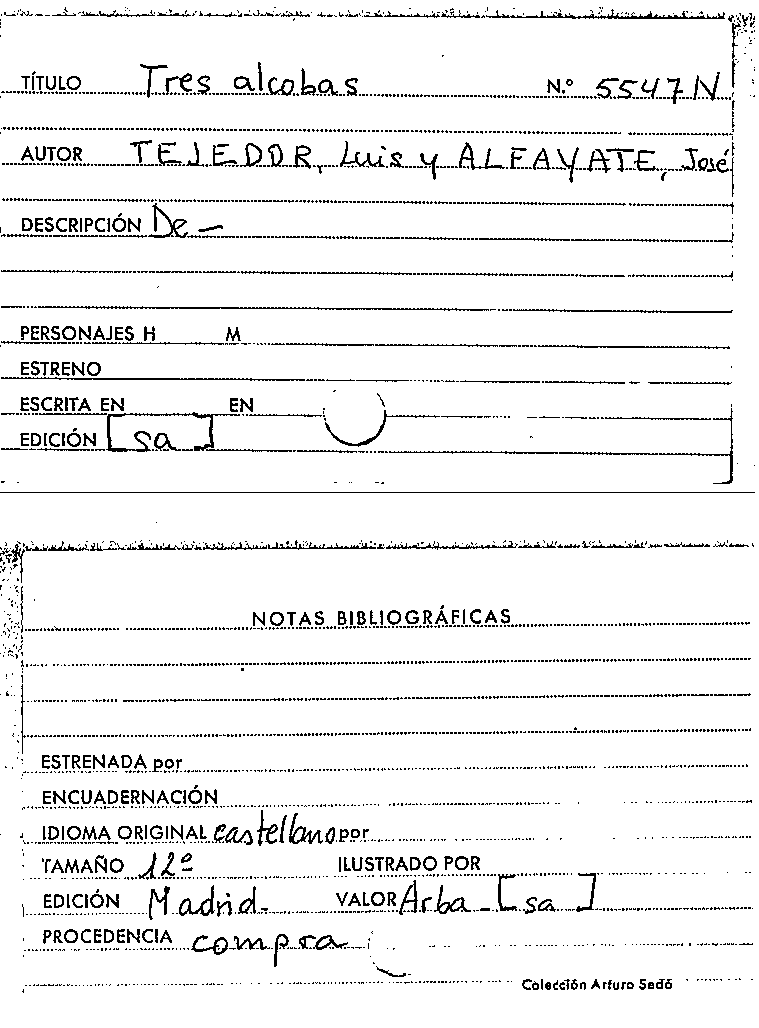 TÍTULO Tres alcobas N.º 5547N
AUTOR TEJEDOR, Luis y ALFAYATE, José
DESCRIPCIÓN De —
PERSONAJES H M
ESTRENO
ESCRITA EN EN
EDICIÓN [sa]
NOTAS BIBLIOGRÁFICAS
ESTRENADA por
ENCUADERNACIÓN
IDIOMA ORIGINAL castellano por
TAMAÑO 12º ILUSTRADO POR
EDICIÓN Madrid- VALOR Arba - [sa]
PROCEDENCIA compra
Colección Arturo Sedó